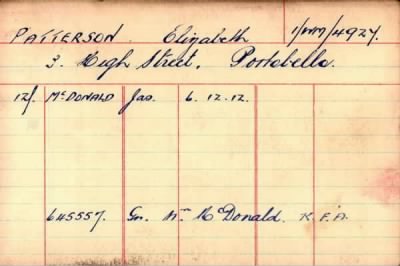 PATTERSON. Elizabeth 1/WM/4927.
3. High Street, Portobello.
12/. McDONALD Jas. 6.12.12.
645557. Gnr. Wm McDonald. R.F.A.